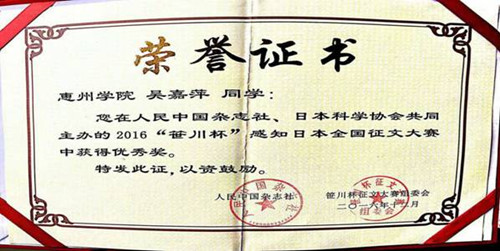 荣誉证书
惠州学院 吴嘉萍 同学:
您在人民中国杂志社、日本科学协会共同
主办的2016“笹川杯”感知日本全国征文大赛
中获得优秀奖。
特发此证,以资鼓励。
人民中国杂志社 笹川杯征文大赛组委会
二〇一六年十二月